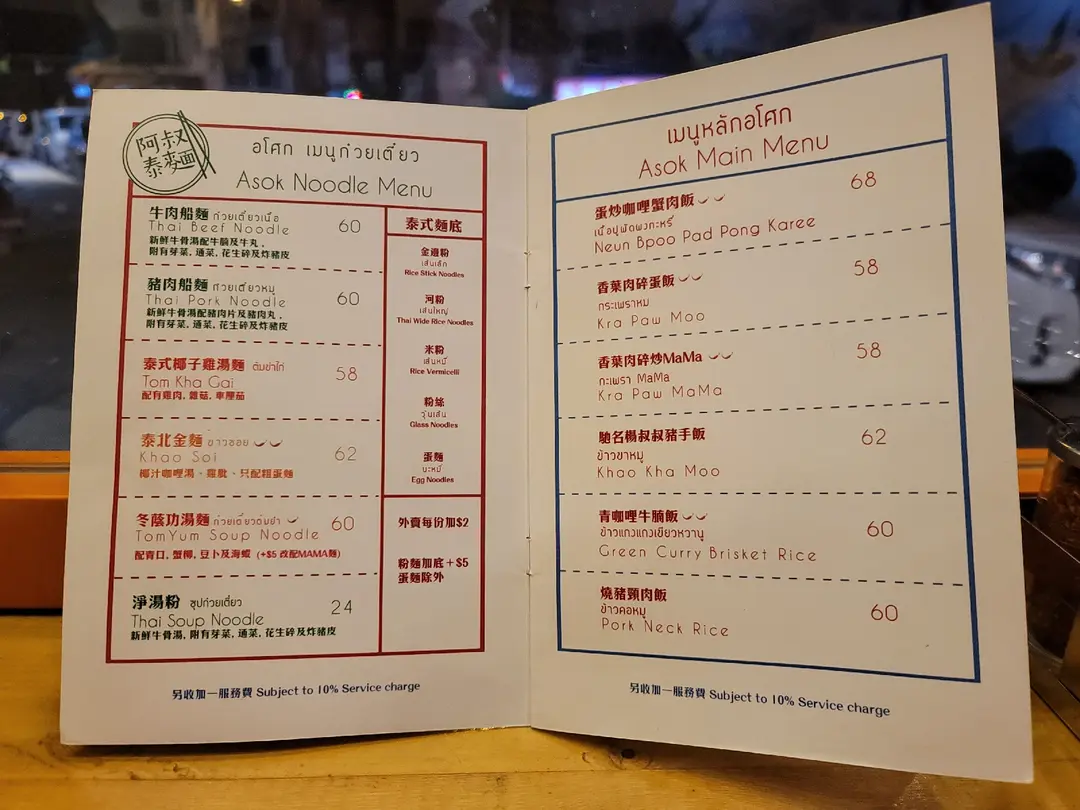 阿叔
泰麵
อโศก เมนูก๋วยเตี๋ยว
Asok Noodle Menu
牛肉船麵 ก๋วยเตี๋ยวเนื้อ
Thai Beef Noodle 60
新鮮牛骨湯配牛腩及牛丸,
附有芽菜, 通菜, 花生碎及炸豬皮
豬肉船麵 ก๋วยเตี๋ยวหมู
Thai Pork Noodle 60
新鮮牛骨湯配豬肉片及豬肉丸,
附有芽菜, 通菜, 花生碎及炸豬皮
泰式椰子雞湯麵 ต้มข่าไก่
Tom Kha Gai 58
配有雞肉, 雜菇, 車厘茄
泰北金麵 ข้าวซอย
Khao Soi 62
椰汁咖哩湯、雞髀、只配粗蛋麵
冬蔭功湯麵 ก๋วยเตี๋ยวต้มยำ
TomYum Soup Noodle 60
配青口, 蟹柳, 豆卜及海蝦 (+$5 改配MAMA麵)
淨湯粉 ซุปก๋วยเตี๋ยว
Thai Soup Noodle 24
新鮮牛骨湯, 附有芽菜, 通菜, 花生碎及炸豬皮
泰式麵底
金邊粉
เส้นเล็ก
Rice Stick Noodles
河粉
เส้นใหญ่
Thai Wide Rice Noodles
米粉
เส้นหมี่
Rice Vermicelli
粉絲
วุ้นเส้น
Glass Noodles
蛋麵
บะหมี่
Egg Noodles
外賣每份加$2
粉麵加底+$5
蛋麵除外
另收加一服務費 Subject to 10% Service charge
เมนูหลักอโศก
Asok Main Menu
蛋炒咖哩蟹肉飯 68
เนื้อปูผัดผงกะหรี่
Neun Bpoo Pad Pong Karee
香葉肉碎蛋飯 58
กระเพราหมู
Kra Paw Moo
香葉肉碎炒MaMa 58
กะเพรา MaMa
Kra Paw MaMa
馳名楊叔叔豬手飯 62
ข้าวขาหมู
Khao Kha Moo
青咖哩牛腩飯 60
ข้าวแกงแกงเขียวหวานู
Green Curry Brisket Rice
燒豬頸肉飯 60
ข้าวคอหมู
Pork Neck Rice
另收加一服務費 Subject to 10% Service charge